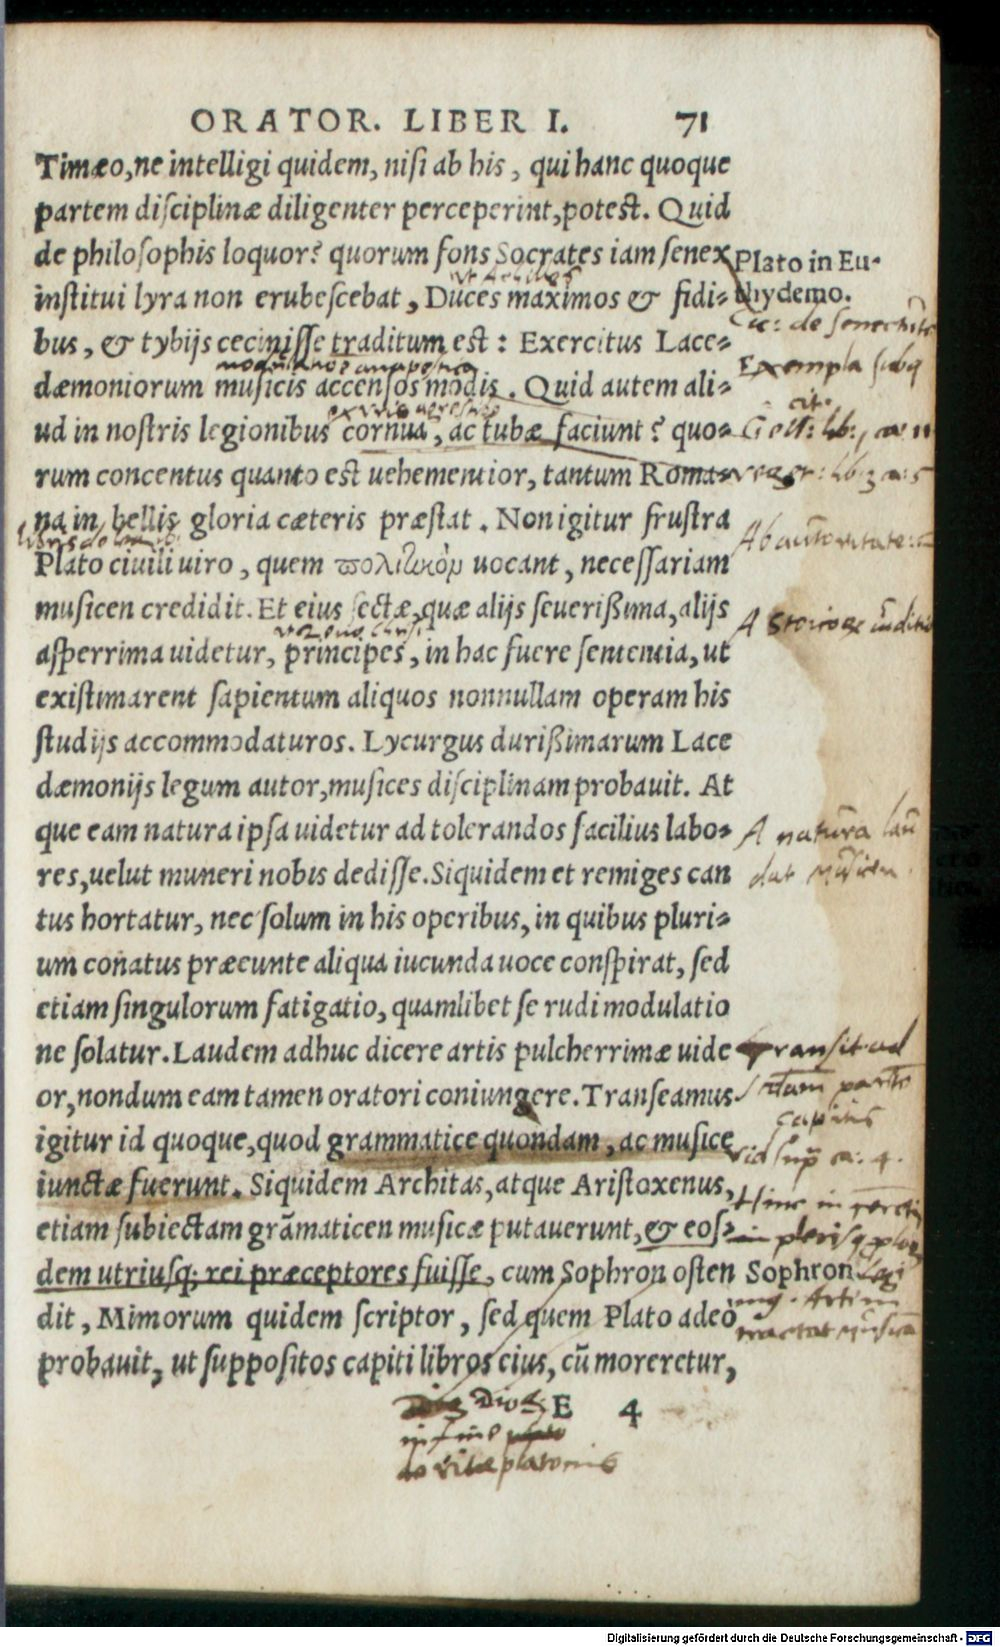 ORATOR. LIBER I. 71
Timæo, ne intelligi quidem, nisi ab his, qui hanc quoque
partem disciplinæ diligenter perceperint, potest. Quid
de philosophis loquor? quorum fons Socrates iam senex
Plato in Eu-
ut Achilles
institui lyra non erubescebat, Duces maximos & fidi-
thydemo.
Cic: de senectute
bus, & tybijs cecinisse traditum est: Exercitus Lace-
Exempla
dæmoniorum musicis accensos modis. Quid autem ali-
cit.
ud in nostris legionibus cornua, ac tubæ faciunt? quo-
Gell: lib: 1 ca: 11
rum concentus quanto est uehementior, tantum Roma-
veget: lib: 3 ca: 5
na in bellis gloria cæteris præstat. Non igitur frustra
Ab autoritate
Plato ciuili uiro, quem πολιτικὸν uocant, necessariam
musicen credidit. Et eius sectæ, quæ alijs seuerißima, alijs
A Stoicorum
asperrima uidetur, principes, in hac fuere sententia, ut
existimarent sapientum aliquos nonnullam operam his
studijs accommodaturos. Lycurgus durißimarum Lace
dæmonijs legum autor, musices disciplinam probauit. At
que eam natura ipsa uidetur ad tolerandos facilius labo-
A natura lau
res, uelut muneri nobis dedisse. Siquidem et remiges can
dat musicen
tus hortatur, nec solum in his operibus, in quibus pluri-
um conatus præeunte aliqua iucunda uoce conspirat, sed
etiam singulorum fatigatio, quamlibet se rudi modulatio
ne solatur. Laudem adhuc dicere artis pulcherrimæ uide
Transit ad
or, nondum eam tamen oratori coniungere. Transeamus
partem
capitis
igitur id quoque, quod grammatice quondam, ac musice
vid sup ca: 4.
iunctæ fuerunt. Siquidem Architas, atque Aristoxenus,
Hinc in
etiam subiectam grãmaticen musicæ putauerunt, & eos-
in plerisq
dem utriusq; rei præceptores fuisse, cum Sophron osten
Sophron
dit, Mimorum quidem scriptor, sed quem Plato adeo
tractat
probauit, ut suppositos capiti libros eius, cũ moreretur,
E 4
in fine
de vita platonis
Digitalisierung gefördert durch die Deutsche Forschungsgemeinschaft - DFG